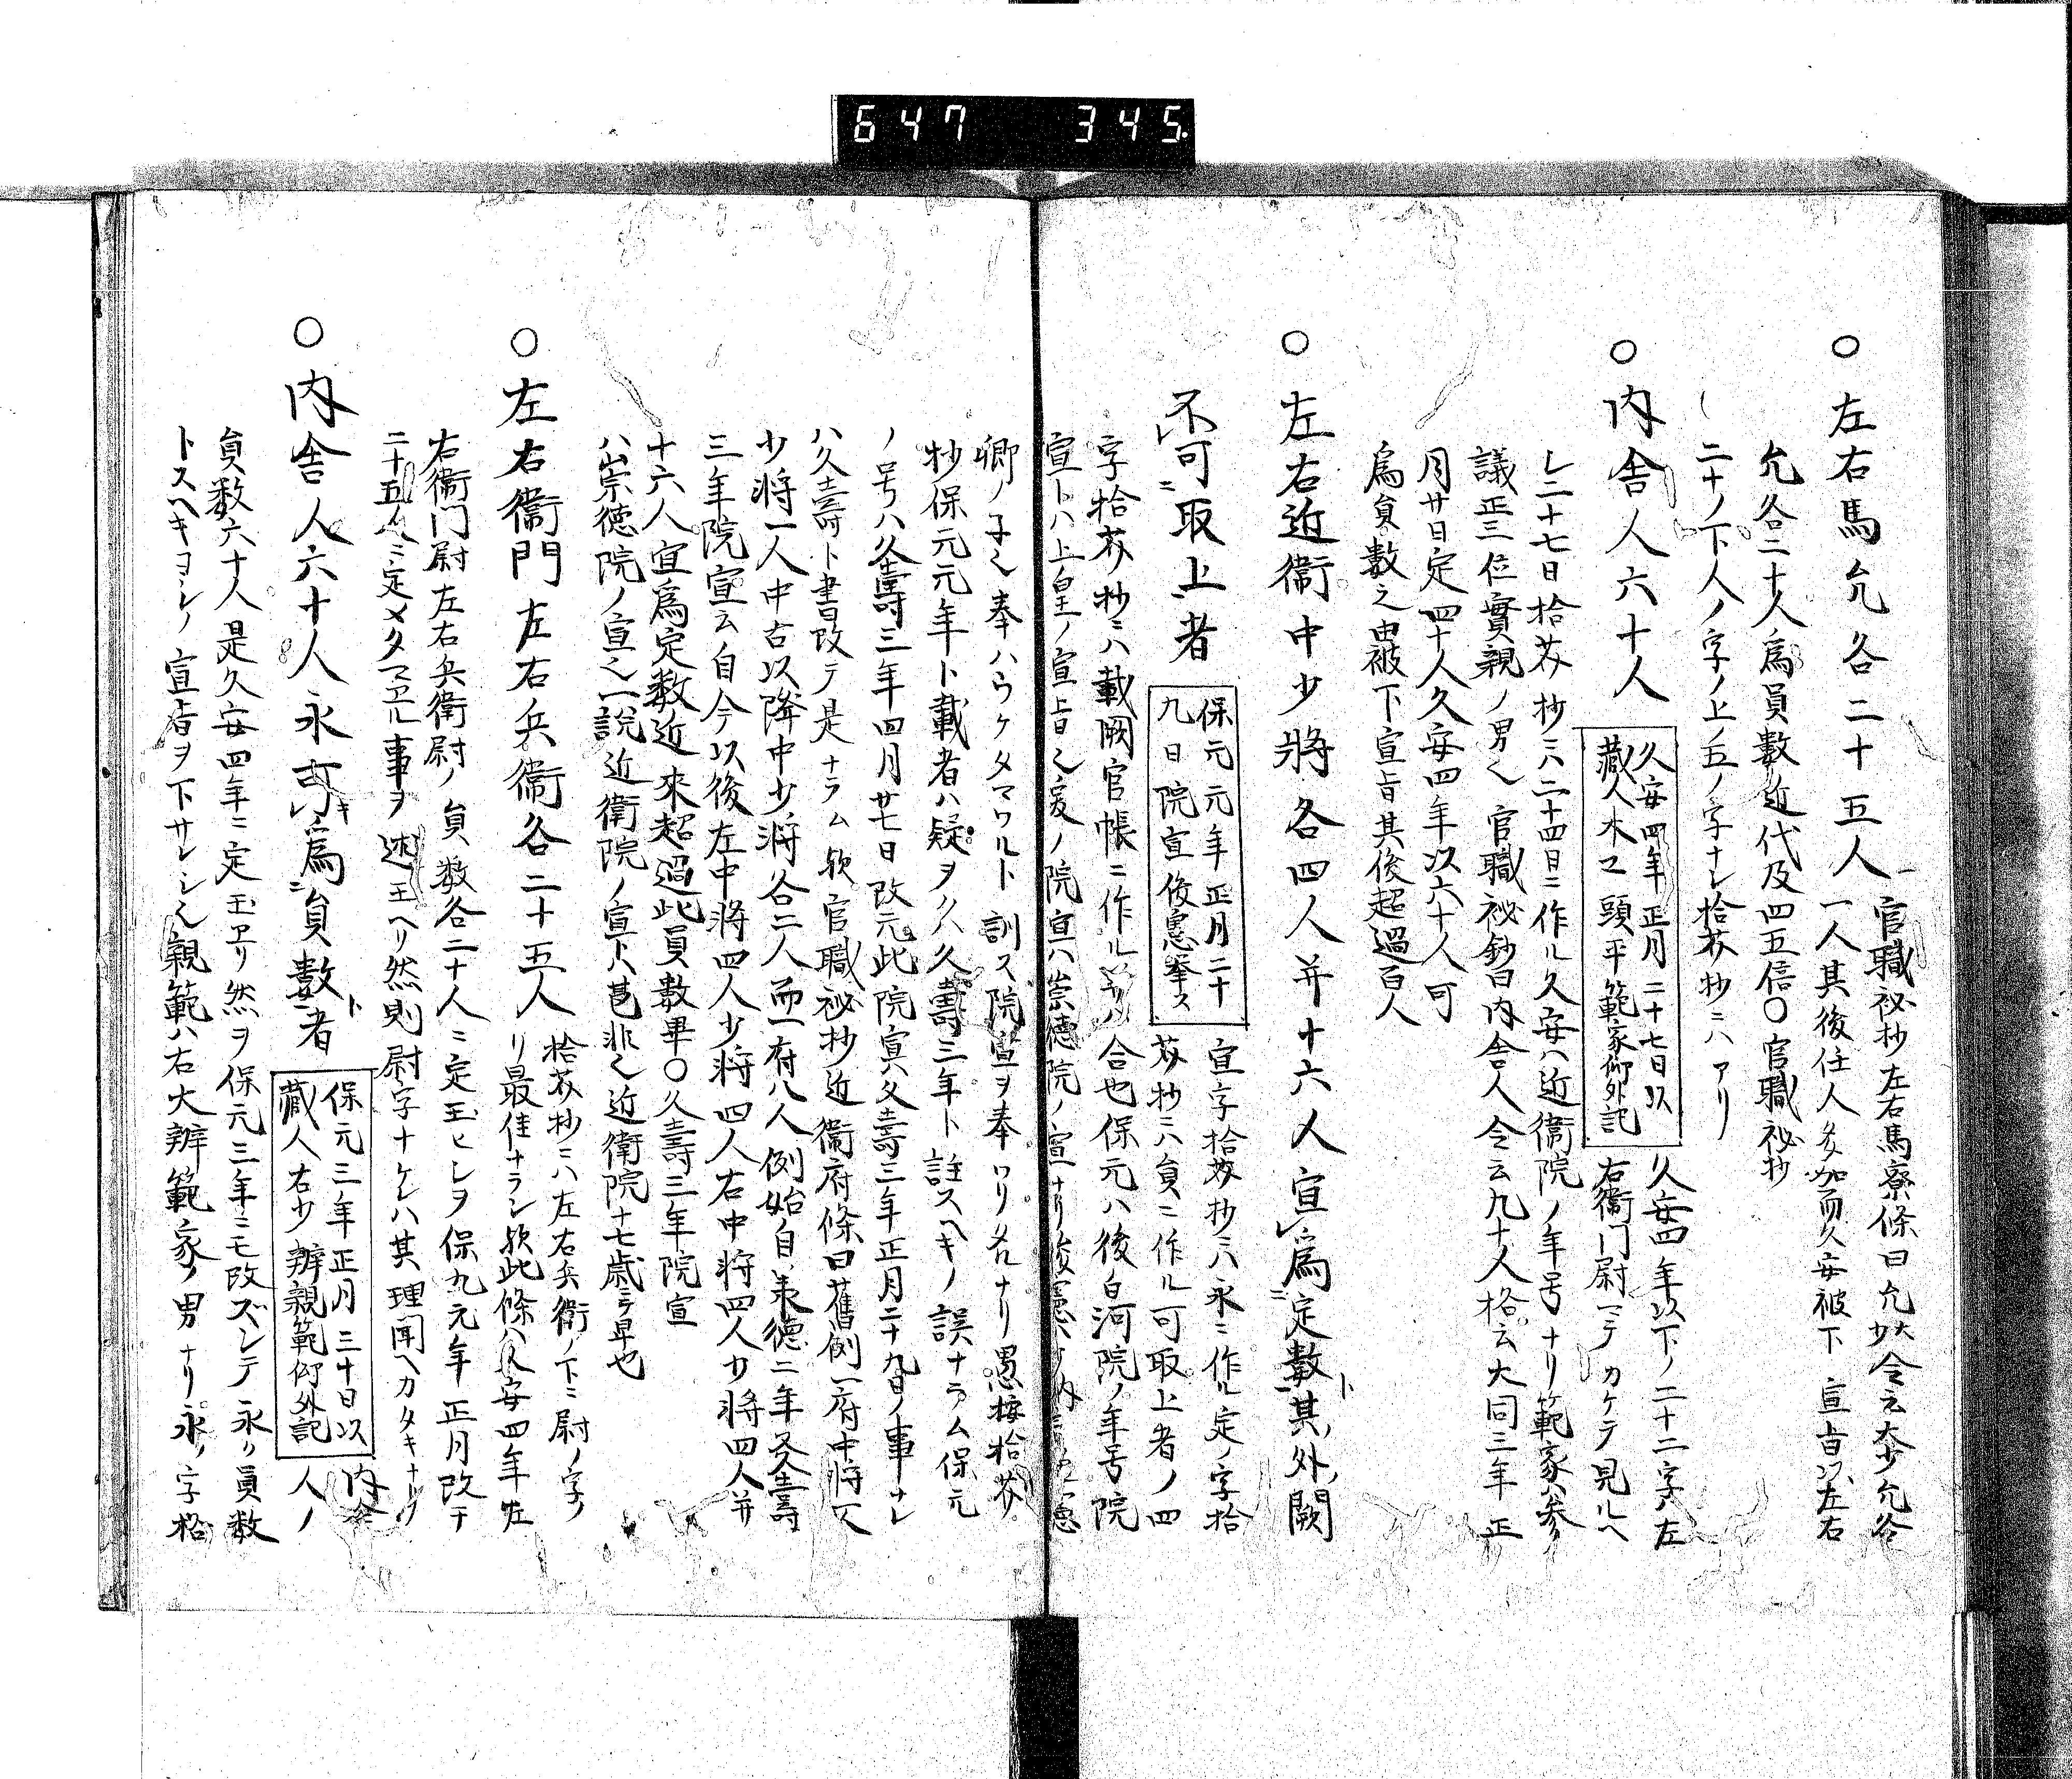 647 345
○左右馬允各二十五人
官職秘抄左右馬寮條曰允大少令云大少允各
一人其後任人多加而久安被下宣旨以左右
允各二十人爲員數近代及四五倍〇官職秘抄
二十ノ下人ノ字ノ上ノ五ノ字ナシ拾芥抄ニハアリ
○内舎人六十人
久安四年正月二十七日以
藏人木工頭平範家仰外記
久安四年以下ノ二十二字ハ左
右衞门尉ニテカケテ見ルヘ
シ二十七日拾芥抄ニハ二十四日ニ作ル久安ハ近衞院ノ年号ナリ範家ハ参
議正三位實親ノ男也官職祕鈔曰内舎人令云九十人格云大同三年正
月廿日定四十人久安四年以六十人可
爲員數之由被下宣旨其後超過百人
○左右近衞中少將各四人并十六人宣爲定數其外闕
不可取上者
保元元年正月二十
九日院宣俊憲奉ス
宣字拾芥抄ニハ永ニ作ル定ノ字拾
芥抄ニハ員ニ作ル可取上者ノ四
字拾芥抄ニハ載闕官帳ニ作ル
合也保元ハ後白河院ノ年号院
宣トハ上皇ノ宣旨也爰ノ院宣ハ崇徳院ノ宣ナリ俊憲ハ
卿ノ子也奉ハウケタマワルト訓ス院宣ヲ奉ワリタルナリ愚按拾芥
抄保元元年ト載者ハ疑ヲハ久壽三年ト註スヘキノ誤ナラム保元
ノ号ハ久壽三年四月廿七日改元此院宣ハ久壽三年正月二十九日ノ事ナレ
ハ久壽ト書改テ是ナラム歟官職祕抄近衞府條曰舊例一府中將一人
少將一人中古以降中少將各二人而一府八人例始自承德二年久壽
三年院宣云自今以後左中將四人少將四人右中將四人少將四人并
十六人宜爲定數近來超過此員數畢〇久壽三年院宣
ハ崇徳院ノ宣也一說近衞院ノ宣トハ甚非也近衞院十七歳ニテ早也
○左右衞門左右兵衞各二十五人
拾芥抄ニハ左右兵衞ノ下ニ尉ノ字
リ最佳ナラン歟此條ハ久安四年左
右衞门尉左右兵衞尉ノ員數各二十人ニ定玉ヒシヲ保九元年正月改テ
二十五人ニ定メタマヱル事ヲ述玉ヘリ然則尉字ナケレハ其理聞ヘカタキナリ
○内舎人六十人永可爲員數者
保元三年正月三十日以
藏人右少辨親範仰外記
内舍
人ノ
員数六十人是久安四年ニ定玉ヱリ然ヲ保元三年ニモ改ズシテ永ク員数
トスヘキヨシノ宣旨ヲ下サレシ也親範ハ右大辨範家ノ男ナリ永ノ字格